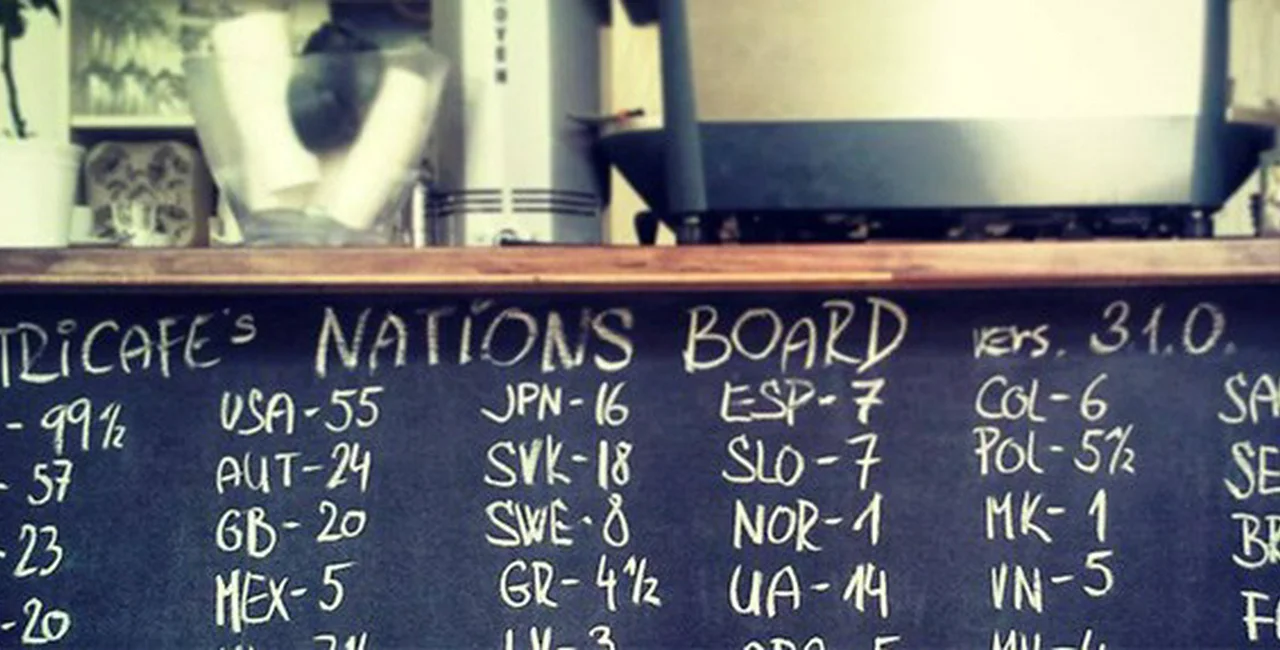 TRiCAFE's NATiONS BOARD vers. 31.0.
- 99½ USA-55 JPN-16 ESP-7 COL-6
- 57 AUT-24 SVK-18 SLO-7 POL-5½
- 23 GB-20 SWE-8 NOR-1 MK-1
- 20 MEX-5 GR-4½ UA-14 VN-5